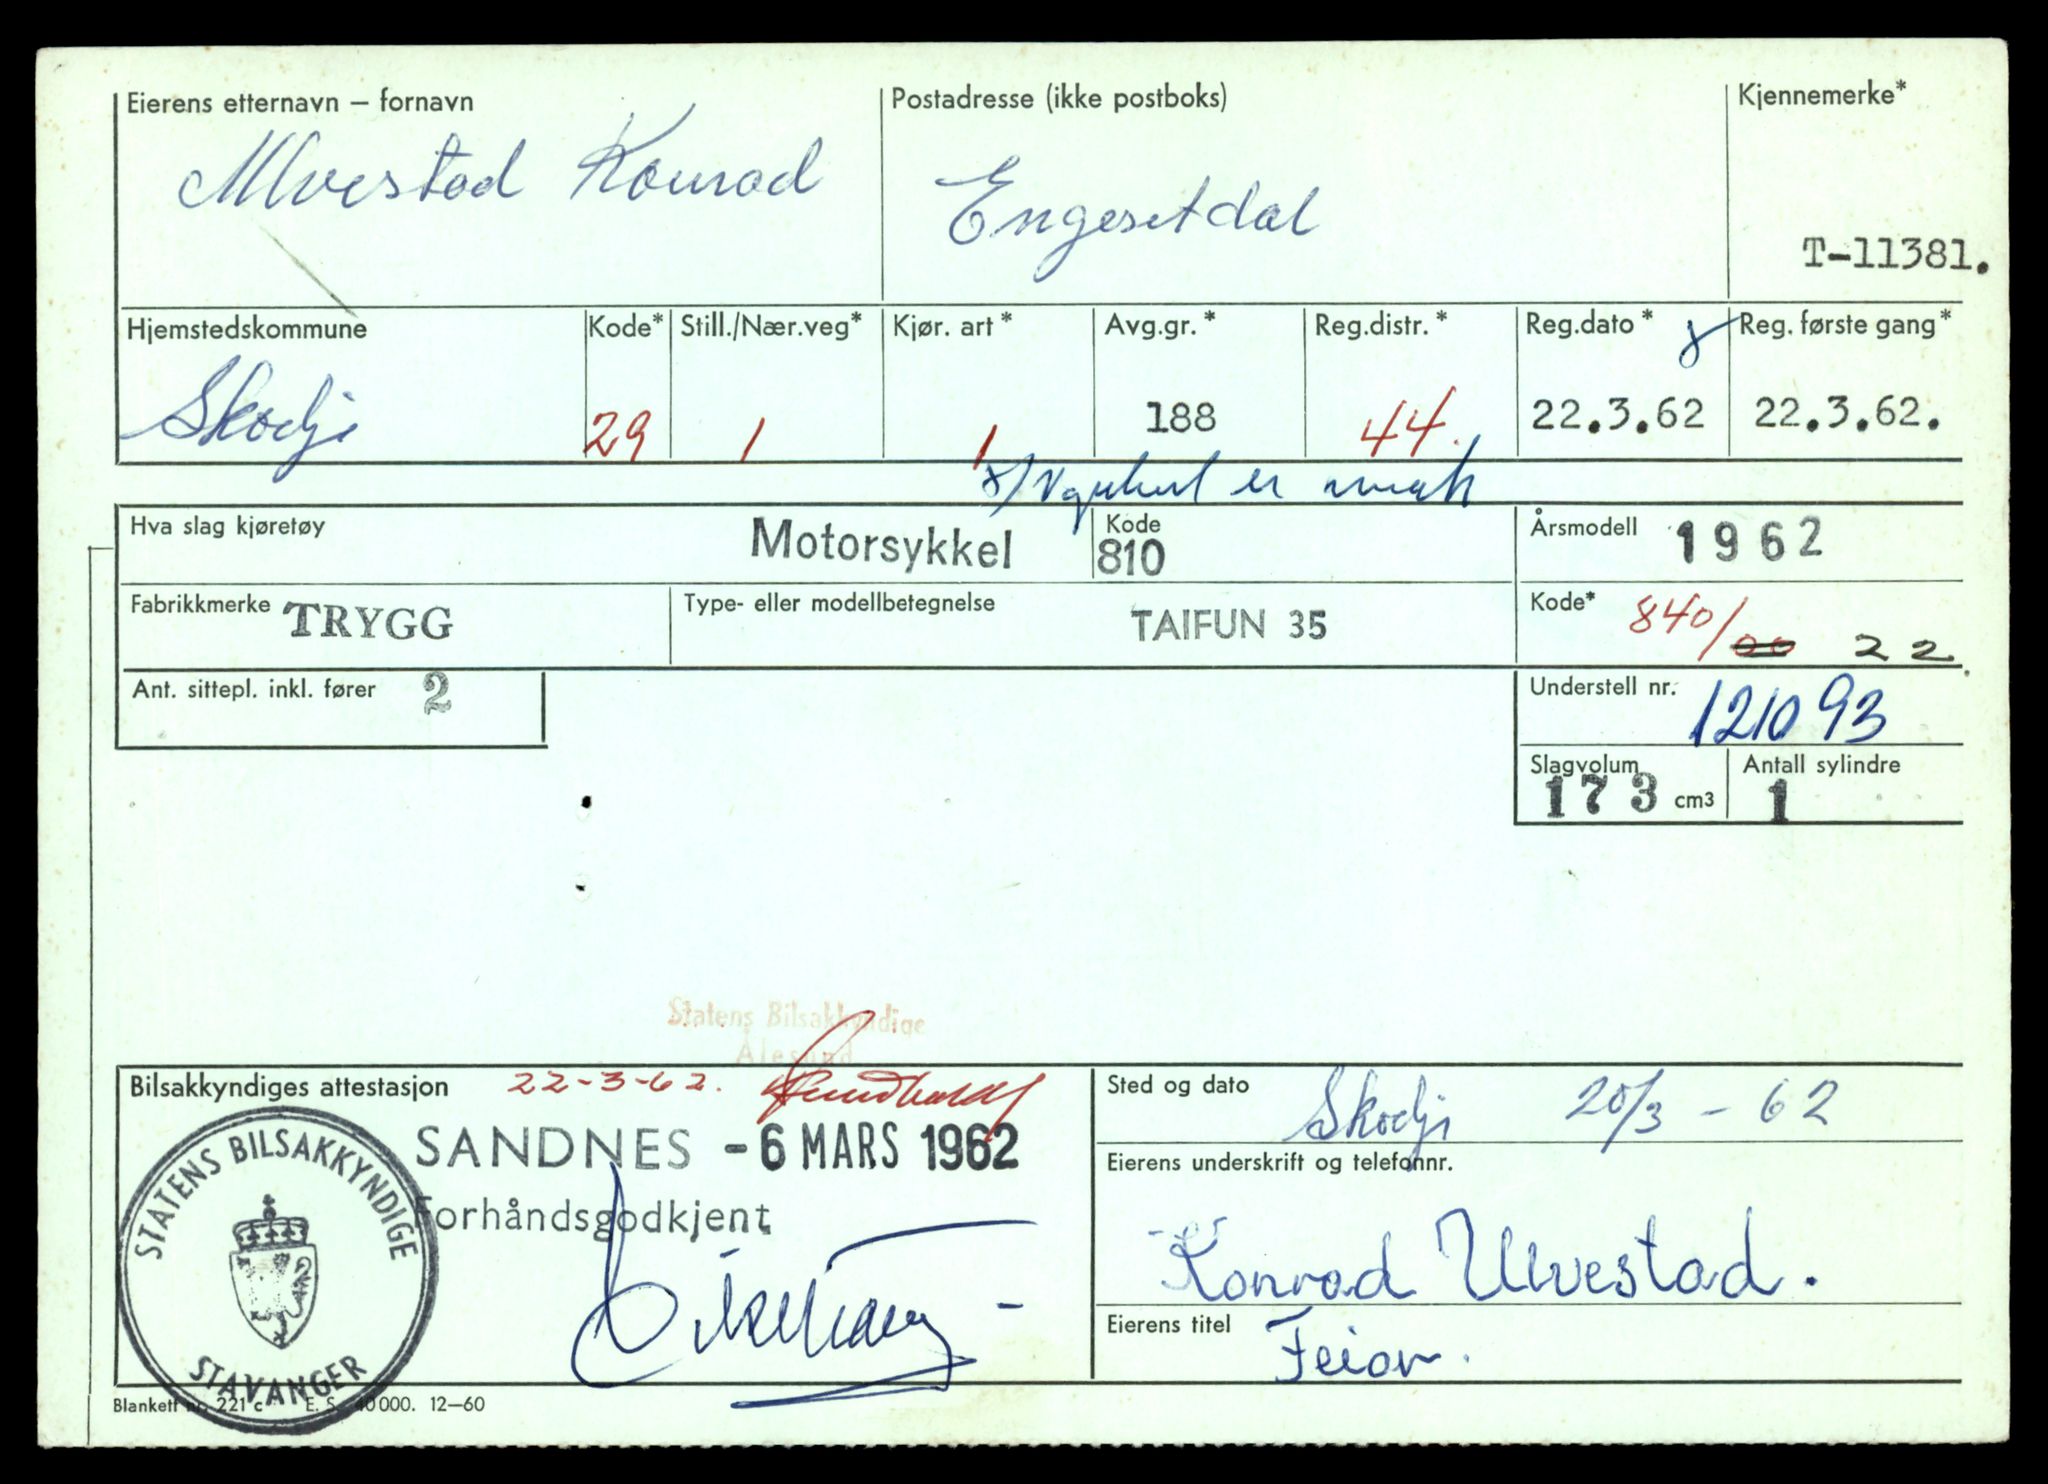 Eierens etternavn – fornavn
Ulvestad Konrad
Postadresse (ikke postboks)
Engesetdal
Kjennemerke*
T-11381.
Hjemstedskommune
Skodje
Kode*
29
Still./Nær.veg*
1
Kjør. art *
1
Avg.gr. *
188
Reg.distr. *
44.
Reg.dato *
22.3.62
Reg. første gang*
22.3.62.
er
Hva slag kjøretøy
Motorsykkel
Kode
810
Årsmodell
1962
Fabrikkmerke
TRYGG
Type- eller modellbetegnelse
TAIFUN 35
Kode*
840/00 22
Ant. sittepl. inkl. fører
2
Understell nr.
121093
Slagvolum
173 cm3
Antall sylindre
1
Statens Bilsakkyndige
Ålesund
Bilsakkyndiges attestasjon
22-3-62.
SANDNES -6 MARS 1962
Forhåndsgodkjent
STATENS BILSAKKYNDIGE
STAVANGER
Sted og dato
Skodje 20/3 - 62
Eierens underskrift og telefonnr.
Konrad Ulvestad.
Eierens titel
Feiar.
Blankett nr. 221 c E. S. 40 000. 12–60